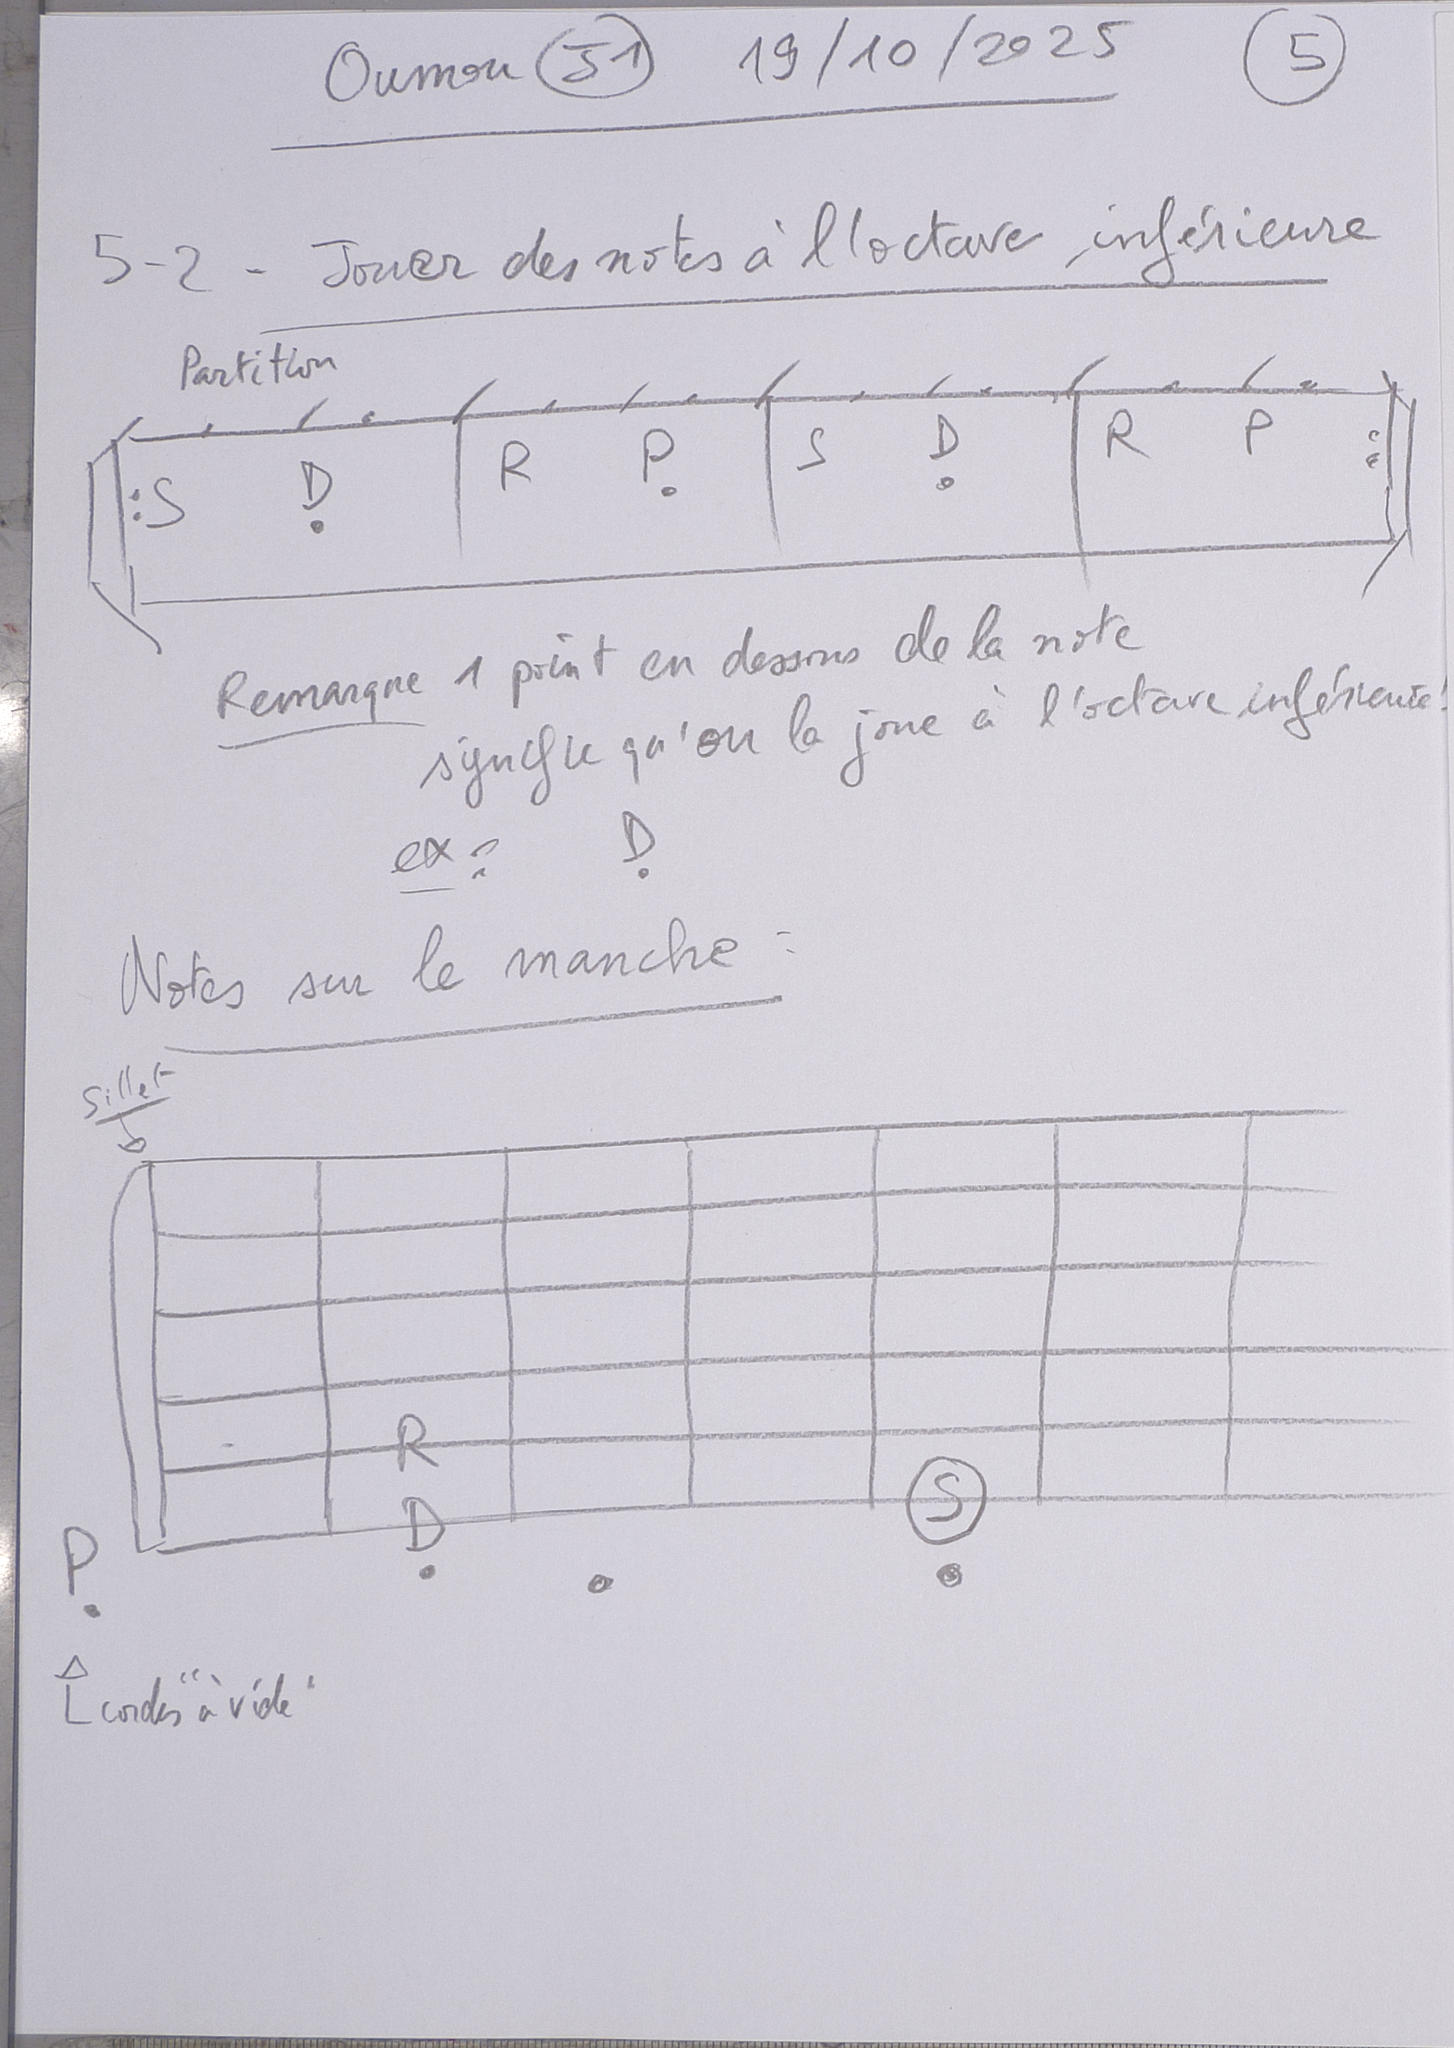 Oumou J1 19/10/2025 5
5-2 - Jouer des notes à l'octave inférieure
Partition
:S Ḍ R P̣ S Ḍ R P :
Remarque 1 point en dessous de la note
signifie qu'on la joue à l'octave inférieure!
ex : Ḍ
Notes sur le manche :
Sillet
R
Ḍ S
P̣
cordes "à vide"